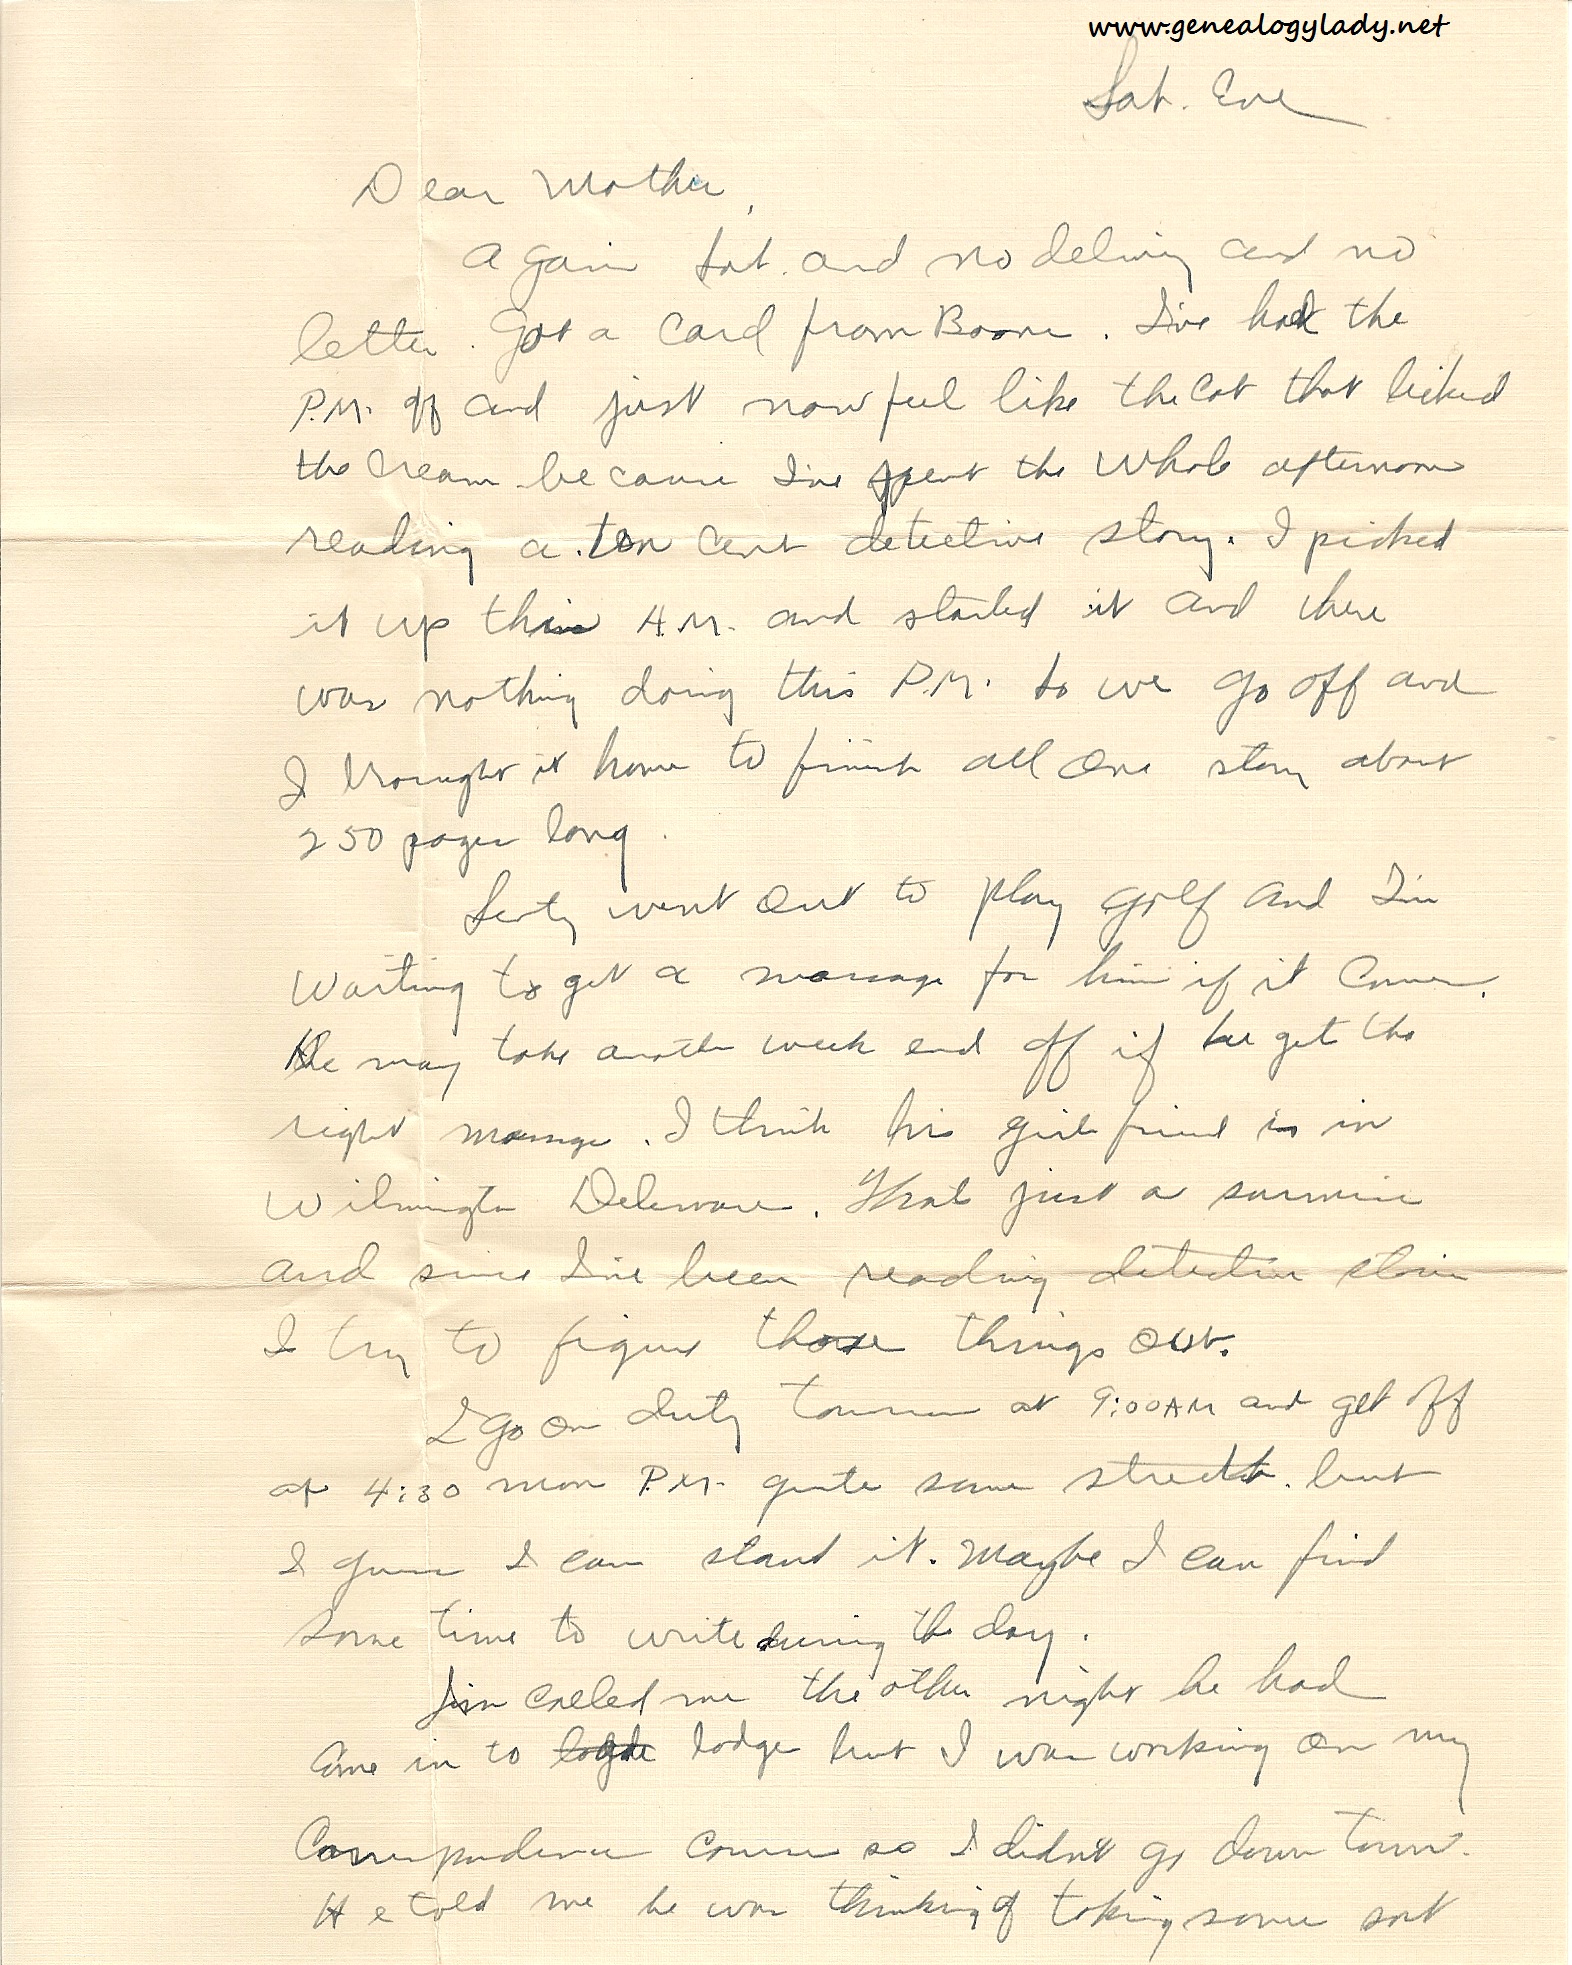 www.genealogylady.net
Sat. Eve
Dear Mother,
Again Sat. and no delivery and no
letter. Got a card from Boone. I've had the
P.M. off and just now feel like the cat that licked
the cream because I've spent the whole afternoon
reading a ten cent detective story. I picked
it up this A.M. and started it and there
was nothing doing this P.M. so we go off and
I brought it home to finish all one story about
250 pages long.
went out to play golf and I'm
waiting to get a message for him if it comes.
He may take another week end off if he gets the
right message. I think his girl friend is in
Wilmington Delaware. That just a surmise
and since I've been reading detective stories
I try to figure those things out.
I go on duty tomorrow at 9:00 AM and get off
at 4:30 Mon P.M. quite some stretch. but
I guess I can stand it. Maybe I can find
some time to write during the day.
Jim called me the other night he had
come in to lodge but I was working on my
Correspondence course so I didn't go down town.
He told me he was thinking of taking some sort